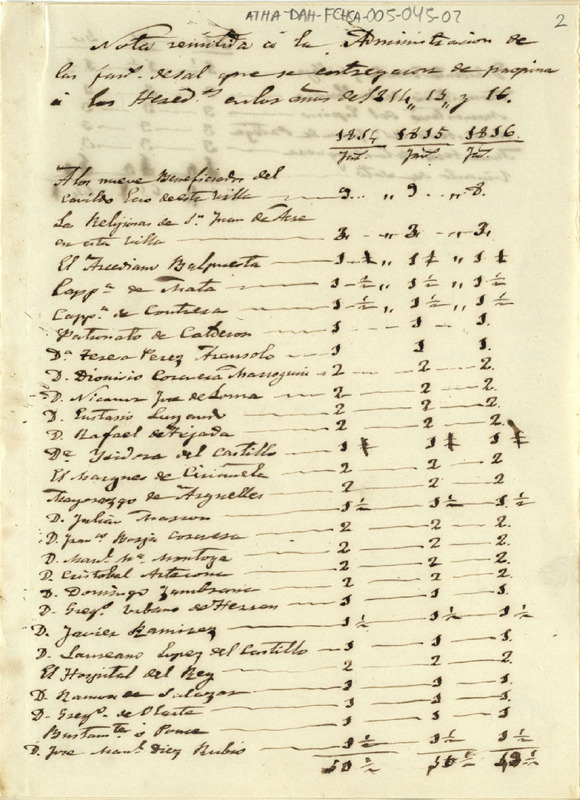 ATHA-DAH-FCHSA-005-045-02
2
Nota remitida á la Administracion de
las fan.s de sal que se entregaron de propina
á los Hered.s en los años de 1814,, 15,, y 16.
1814 1815 1816.
Fan.s Fan.s Fan.s
A los nueve Beneficiados del
cavildo Ecco de esta Villa 9 ,, 9 ,, 8.
Las Religiosas de S.n Juan de Acre
en esta Villa 3 ,, 3 3,
El Arcediano Balpuesta 1 ,, 1 ,, 1
Capp.a de Mata 1 1/2 ,, 1 1/2 ,, 1 1/2
Capp.a de Contrera 1 1/2 ,, 1 1/2 ,, 1 1/2
Patronato de Calderon 1 1 1.
D.a Teresa Perez 1 1 1.
D. Dionisio Corcuera Marroquin 2 2 2.
D. Nicanor Jose de Loma 2 2 2.
D. Eustasio Luyando 2 2 2.
D. Rafael de Tejada 2 2 2.
D.a Ysidora del Castillo 1 1 1
El Marques de Ciriñuela 2 2 2.
Mayorazgo de Arguelles 2 2 2.
D. Julian Marron 1 1/2 1 1/2 1 1/2
D. Fran.co Borja Corcuera 2 2 2.
D. Man.l M.a Montoya 2 2 2.
D. Cristobal 2 2 2.
D. Domingo Zambrana 2 2 2.
D. Greg.o Urbano de Herran 1 1 1.
D. Javier Ramirez 1 1/2 1 1/2 1 1/2
D. Laureano Lopez del Castillo 1 1 1.
El Hospital del Rey 2 2 2.
D. Ramon de Salazar 1 1 1.
D. Greg.o de Olarte 1 1 1.
Bustam.te ó Ponce 1 1 1.
D. Jose Man.l Diez Rubio 1 1/2 1 1/2 1 1/2
50 1/2 50 1/2 49 1/2